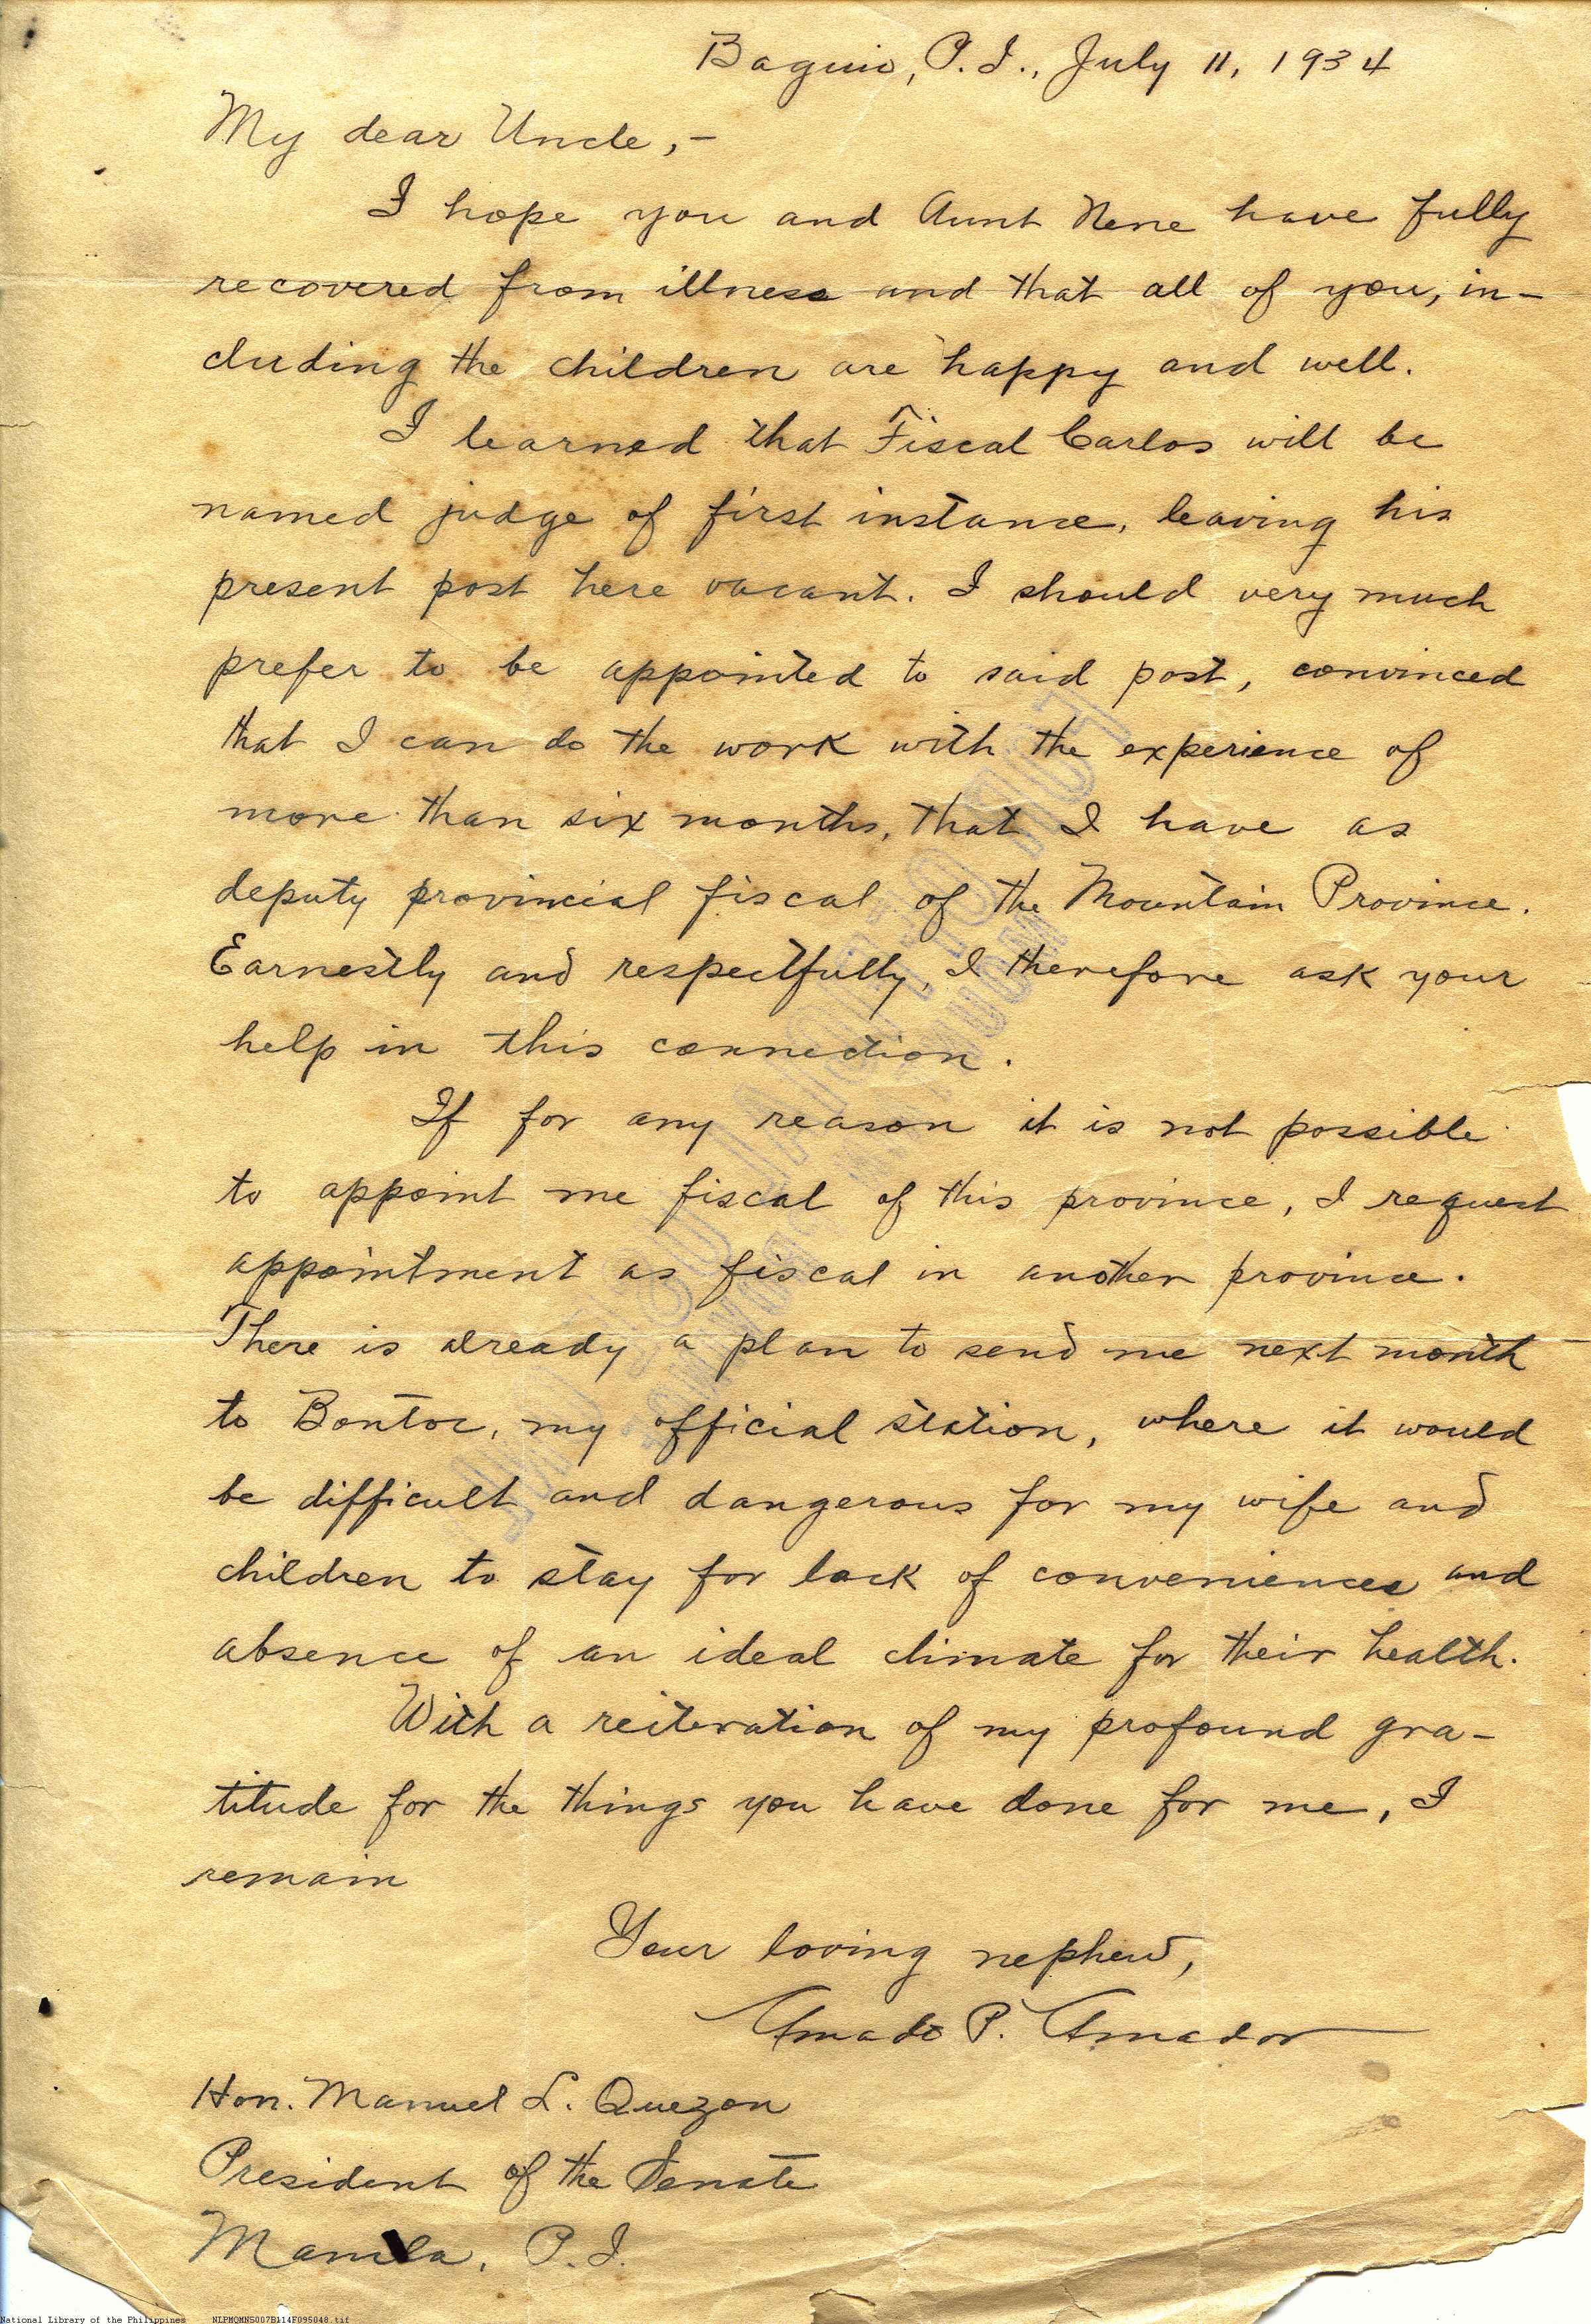 Baguio, P.I., July 11, 1934
My dear Uncle,-
I hope you and Aunt Nene have fully
recovered from illness and that all of you, in-
cluding the children are happy and well.
I learned that Fiscal Carlos will be
named judge of first instance, leaving his
present post here vacant. I should very much
prefer to be appointed to said post, convinced
that I can do the work with the experience of
more than six months, that I have as
deputy provincial fiscal of the Mountain Province.
Earnestly and respectfully, I therefore ask your
help in this connection.
If for any reason it is not possible
to appoint me fiscal of this province, I request
appointment as fiscal in another province.
There is already a plan to send me next month
to Bontoc, my official station, where it would
be difficult and dangerous for my wife and
children to stay for lack of conveniences and
absence of an ideal climate for their health.
With a reiteration of my profound gra-
titude for the things you have done for me, I
remain
Your loving nephew,
Amado P. Amador
Hon. Manuel L. Quezon
President of the Senate
Manila, P.I.
National Library of the Philippines NLPMQMNS007B114F095048.tif